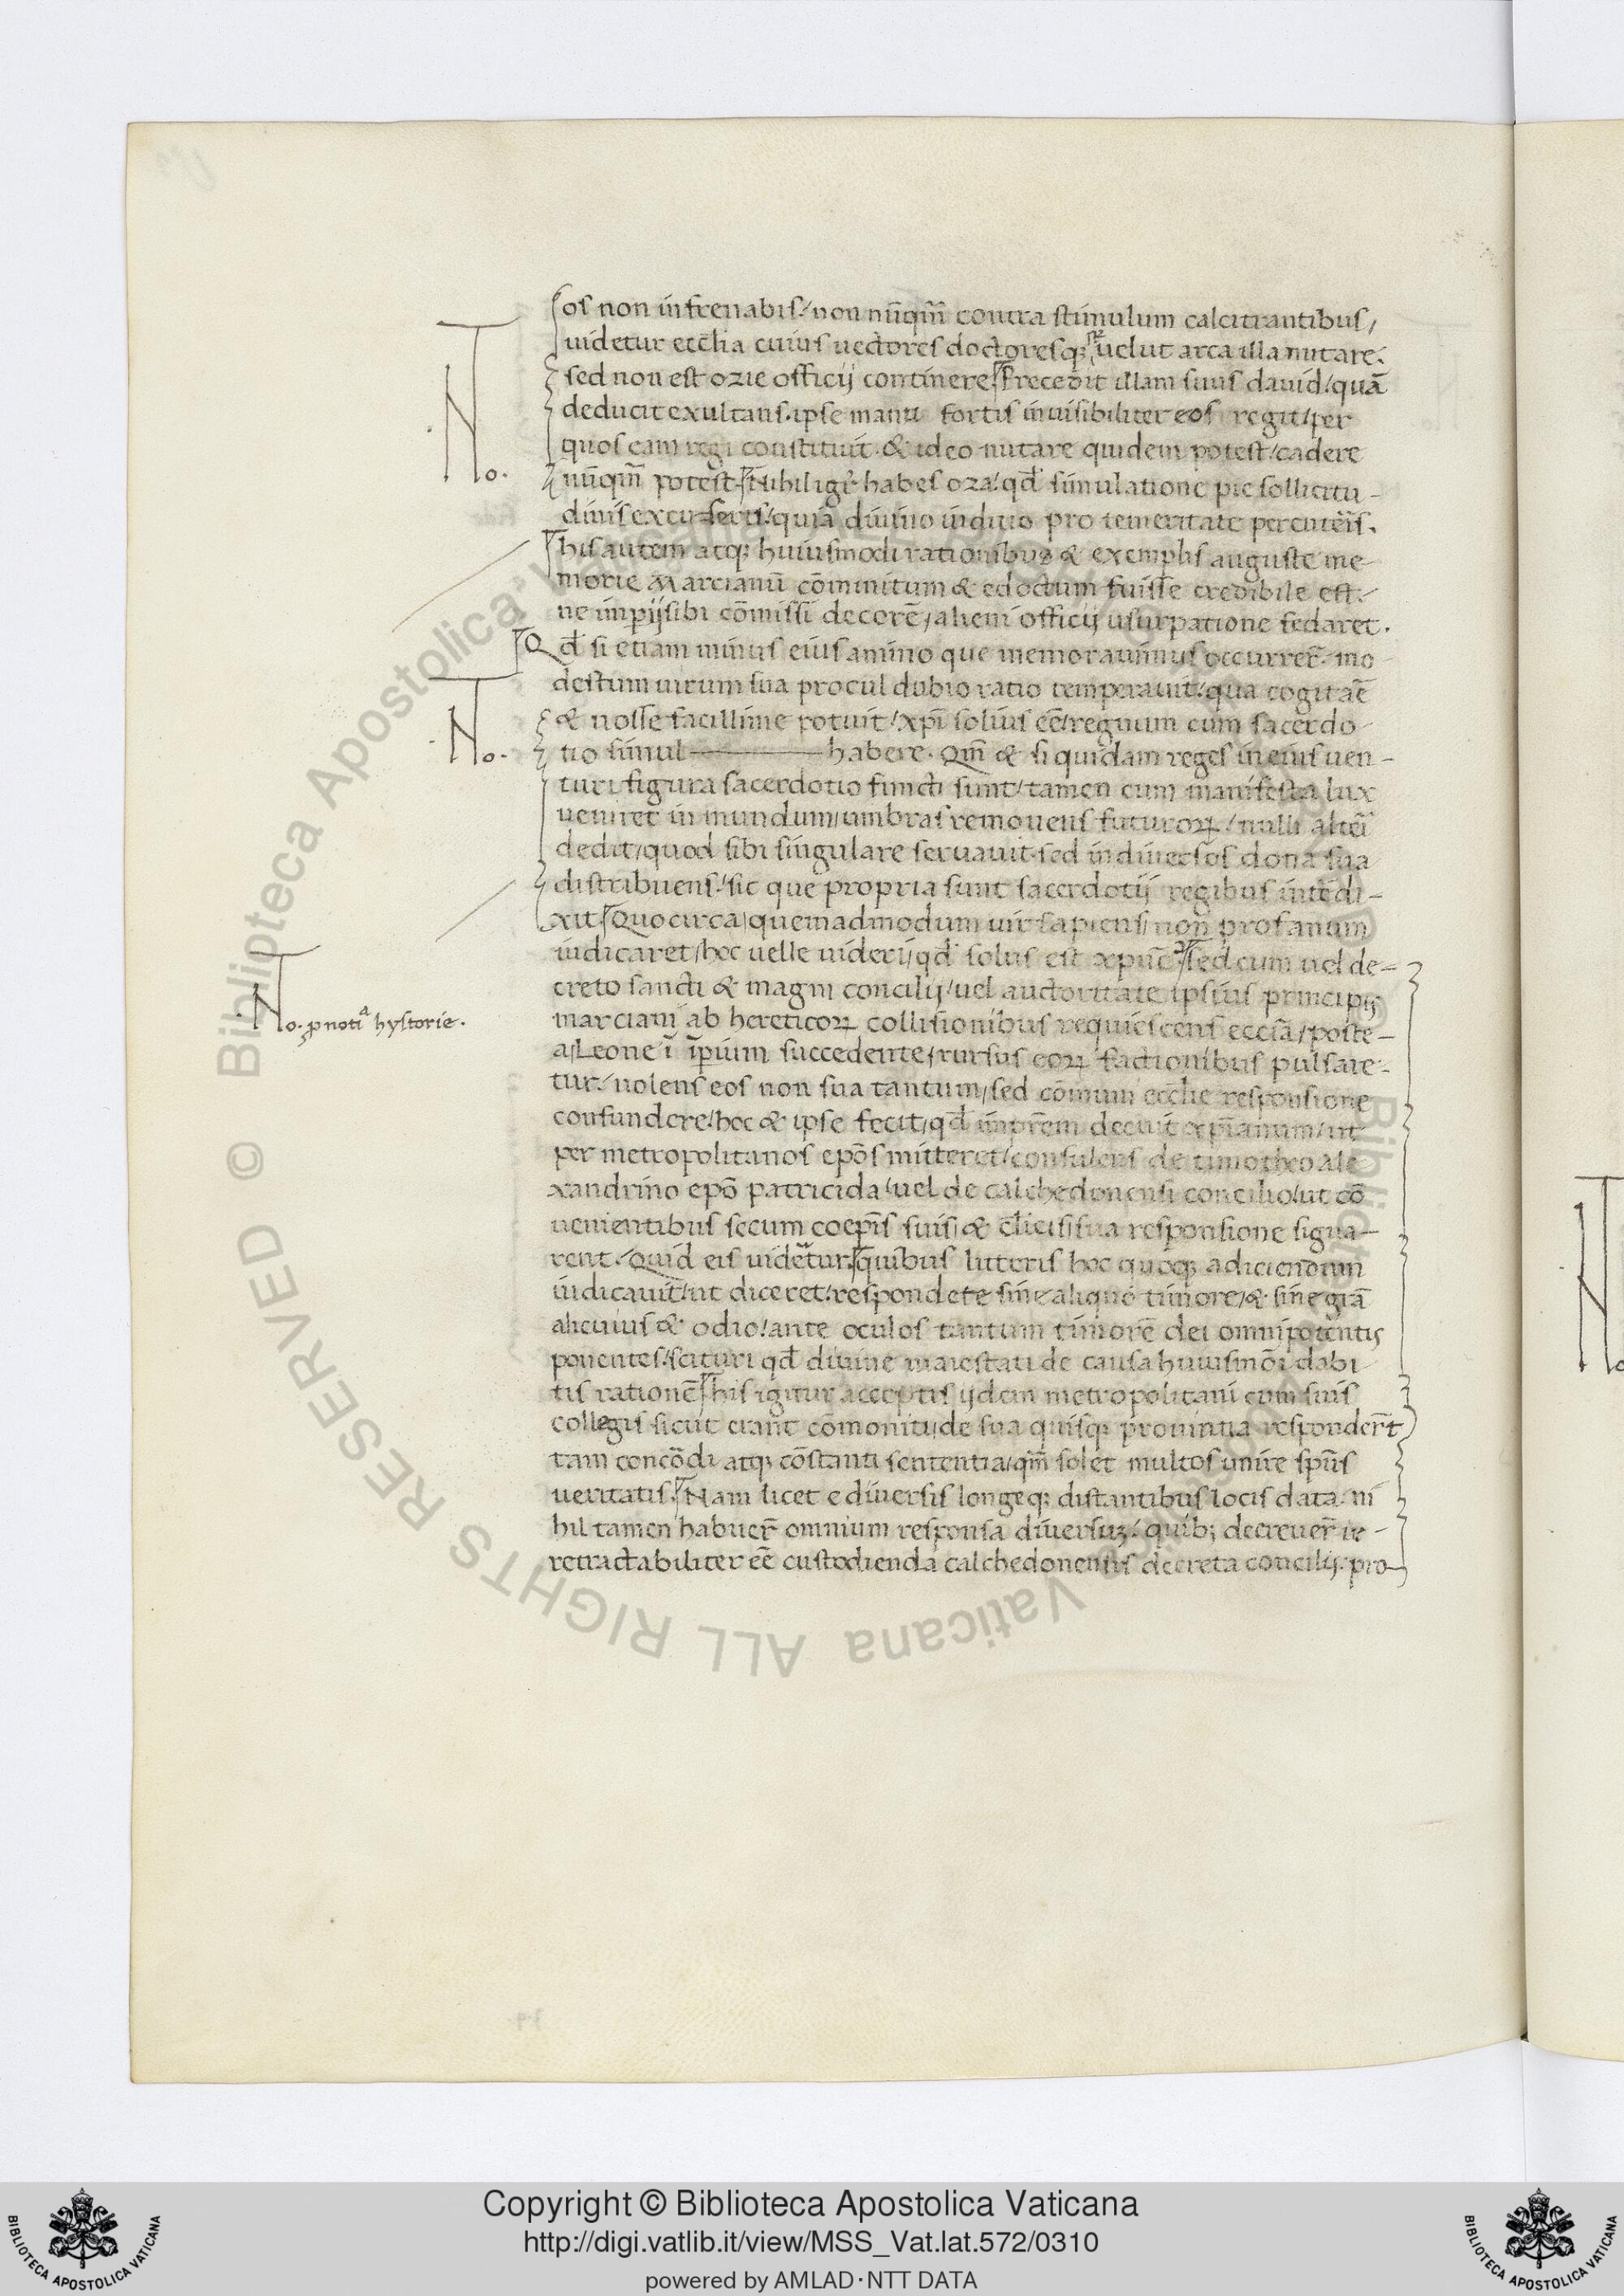 os non infrenabis. non nūqm̄ contra stimulum calcitrantibus,
uidetur eccl̄ia cuius uectores doctoresq; uelut arca illa nutare.
sed non est ozie officij continere Precedit illam suus dauid, quā
deducit exultans. ipse manu fortis inuisibiliter eos regit, per
quos eam regi constituit. & ideo nutare quidem potest, cadere
nūqm̄ potest. Nihil igr̄ habes oza, qd̄ simulatione pie sollicitu-
dinis excuseris, quia diuino iuditio pro temeritate percuteris.
his autem atq; huiusmodi rationibus & exemplis auguste me-
morie Marcianū cōmnitum & edoctum fuisse credibile est.
ne imp̄ij sibi cōmissi decorē, alieni officij usurpatione fedaret.
Qd̄ si etiam minus eius amino que memorauimus occurrer̄. mo
destum uirum sua procul dubio ratio temperauit, qua cogitar̄
& nosse facillime potuit, xp̄i solius eē, regnum cum sacerdo
tio simul habere. Qm̄ & si quidam reges in eius uen-
turi figura sacerdotio functi sunt, tamen cum manifesta lux
ueniret in mundum, umbras remouens futuroꝝ, nulli alteri
dedit, quod sibi singulare seruauit. sed in diuersos dona sua
distribuens, sic que propria sunt sacerdotij regibus intēdi-
xit. Quocirca, quemadmodum uir sapiens, non profanum
iudicaret, hoc uelle uideri, qd̄ solus est sed cum uel de-
creto sancti & magni concilij, uel auctoritate ipsius principis
marciani ab hereticoꝝ collisionibus requiescens eccl̄ia, poste-
a, Leone ī īp̄ium succedente, rursus eoꝝ factionibus pulsare-
tur. uolens eos non sua tantum, sed cōmuni eccl̄ie responsione
confundere, hoc & ipse fecit, qd̄ decuit xp̄ianum, ut
per metropolitanos ep̄os mitteret, consulens de timotheo ale
xandrino ep̄o patricida, uel de calchedonensi concilio, ut cō
uenientibus secum coep̄is suis, & cl̄icis, sua responsione signa-
rent. Quid eis uidetur. quibus litteris hoc quoq; adiciendum
iudicauit, ut diceret, respondete sine aliquo timore, & sine grā
alicuius & odio, ante oculos tantum timorē dei omnipotentis
ponentes, scituri qd̄ diuine maiestati de causa huiusmōi dabi
tis rationē his igitur acceptis ijdem metropolitani cum suis
collegis sicut erant cōmoniti, de sua quisq; prouintia responder̄t
tam concōdi atq; cōstanti sententia, qm̄ solet multos unire sp̄us
ueritatis. Nam licet e diuersis longeq; distantibus locis data. ni
hil tamen habuer̄ omnium responsa diuersuʒ, quib; decreuer̄ ir-
retractabiliter eē custodienda calchedonensis decreta concilij. pro
No.
No.
No. p̱ notiᵃ hystorie.
Copyright © Biblioteca Apostolica Vaticana
http://digi.vatlib.it/view/MSS_Vat.lat.572/0310
powered by AMLAD·NTT DATA
BIBLIOTECA APOSTOLICA VATICANA
BIBLIOTECA APOSTOLICA VATICANA